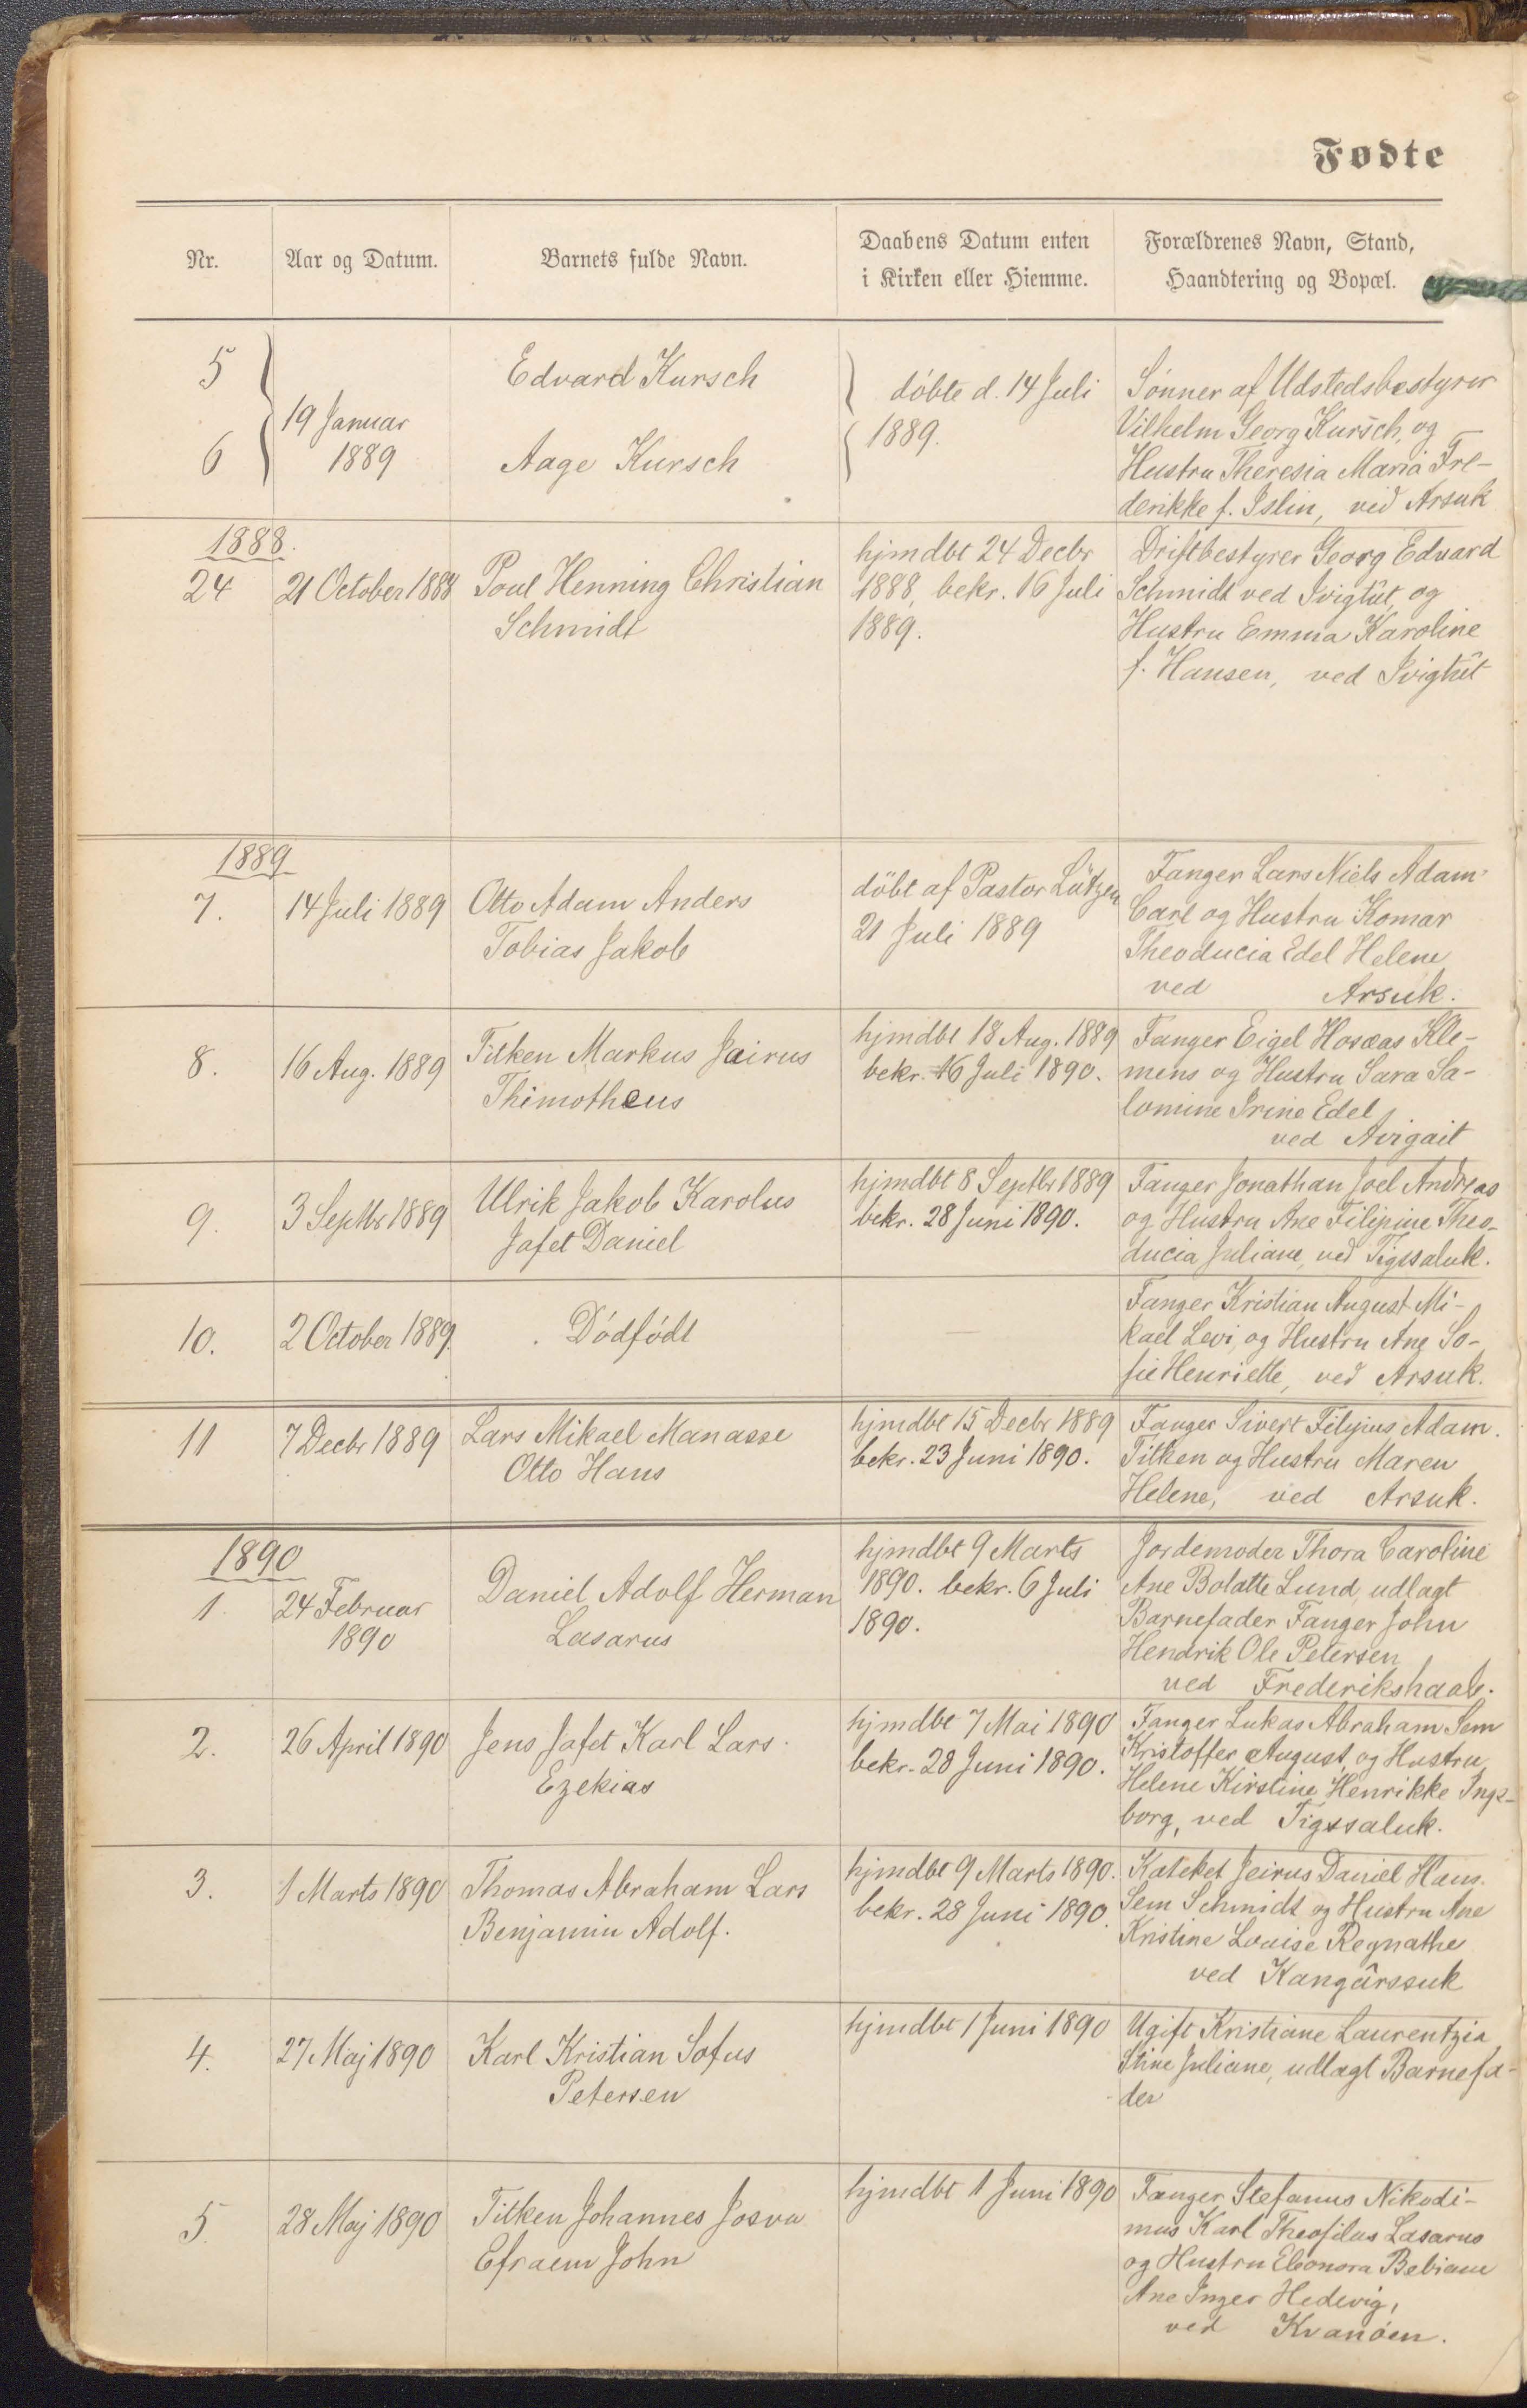 Fødte
Nr.
Aar og Datum.
Barnets fulde Navn.
Daabens Datum enten
i Kirken eller Hiemme.
Forældrenes Navn, Stand,
Haandtering og Bopæl.
5
6
19 Januar
1889
Edvard Kursch
Aage Kursch
döbte d. 14 Juli
1889.
Sönner af Udstedsbestyrer
Vilhelm Georg Kursch, og
Hustru Theresia Maria Fre-
derikke f. Islin, ved Arsuk
1888.
24
21 October 1888
Poul Henning Christian
Schmidt
hjmdbt 24 Decbr
1888, bekr. 16 Juli
1889.
Driftbestyrer Georg Edvard
Schmidt ved Ivigtût, og
Hustru Emma Karoline
f. Hansen, ved Ivigtût
1889
7.
14 Juli 1889
Otto Adam Anders
Tobias Jakob
döbt af Pastor Lützen
21 Juli 1889
Fanger Lars Niels Adam
Carl og Hustru Komar
Theoducia Edel Helene
ved Arsuk.
8.
16 Aug. 1889
Titken Markus Jairus
Thimotheus
hjmdbt 18 Aug. 1889
bekr. 16 Juli 1890.
Fanger Eigel Hoseas Kle-
mens og Hustru Sara Sa-
lomine Irine Edel,
ved Avigait
9.
3 Septbr 1889
Ulrik Jakob Karolus
Jafet Daniel
hjmdbt 8 Septbr 1889
bekr. 28 Juni 1890.
Fanger Jonathan Joel Andreas
og Hustru Ane Filipine Theo-
ducia Juliane, ved Tigssaluk.
10.
2 October 1889.
Dödfödt
—
Fanger Kristian August Mi-
kael Levi, og Hustru Ane So-
fie Henriette, ved Arsuk.
11
7 Decbr 1889
Lars Mikael Manasse
Otto Hans
hjmdbt 15 Decbr 1889
bekr. 23 Juni 1890.
Fanger Sivert Filipus Adam
Titken og Hustru Maren
Helene, ved Arsuk.
1890
1.
24 Februar
1890
Daniel Adolf Herman
Lasarus
hjmdbt 9 Marts
1890. bekr. 6 Juli
1890.
Jordemoder Thora Caroline
Ane Bolatte Lund, udlagt
Barnefader Fanger John
Hendrik Ole Petersen
ved Frederikshaab.
2.
26 April 1890
Jens Jafet Karl Lars
Ezekias
hjmdbt 7 Mai 1890
bekr. 28 Juni 1890.
Fanger Lukas Abraham Sem
Kristoffer August, og Hustru
Helene Kirstine Henrikke Inge-
borg, ved Tigssaluk.
3.
1 Marts 1890
Thomas Abraham Lars
Benjamin Adolf.
hjmdbt 9 Marts 1890.
bekr. 28 Juni 1890.
Kateket Jeirus Daniel Hans
Sem Schmidt og Hustru Ane
Kristine Louise Regnathe
ved Kangârssuk
4.
27 Maj 1890
Karl Kristian Sofus
Petersen
hjmdbt 1 Juni 1890
Ugift Kristiane Laurentzia
Stine Juliane, udlagt Barnefa-
der
5.
28 Maj 1890
Titken Johannes Josva
Efraem John
hjmdbt 1 Juni 1890
Fanger Stefanus Nikodi-
mus Karl Theofilus Lasarus
og Hustru Eleonora Bebiane
Ane Inger Hedevig,
ved Kvanöen.